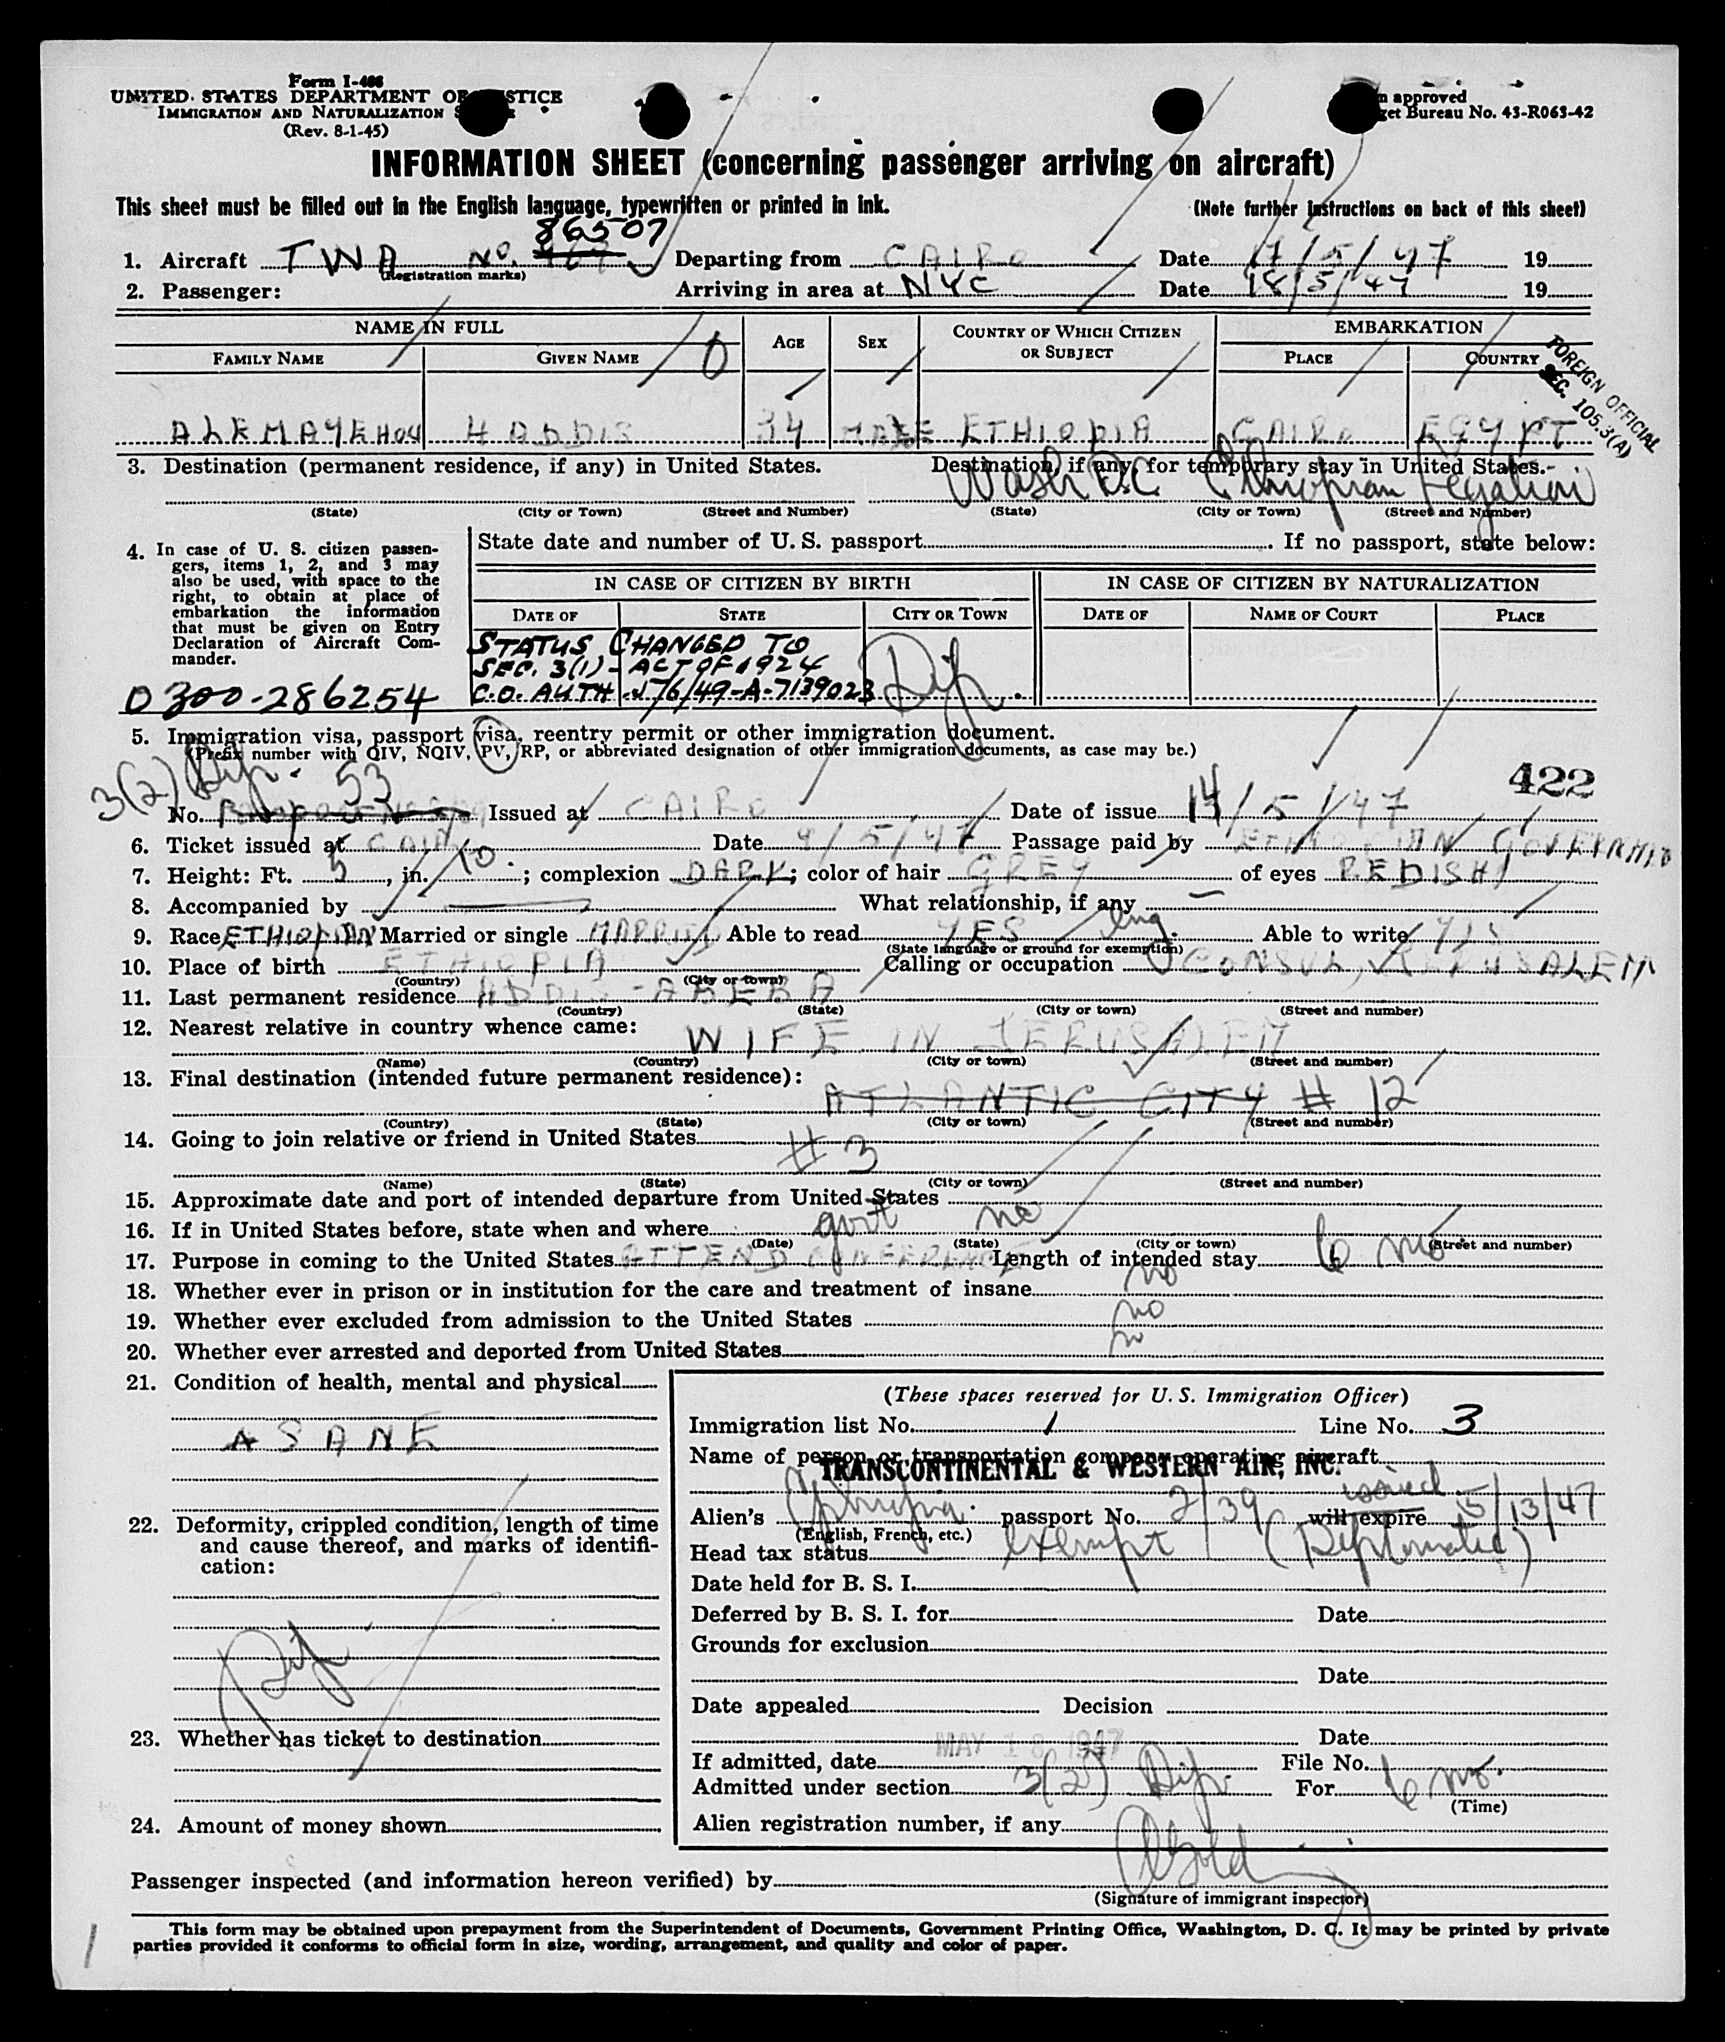 Form I-466
UNITED STATES DEPARTMENT OF JUSTICE
IMMIGRATION AND NATURALIZATION
(Rev. 8-1-45)
approved
Bureau No. 43-R063-42
INFORMATION SHEET (concerning passenger arriving on aircraft)
This sheet must be filled out in the English language, typewritten or printed in ink.
(Note further instructions on back of this sheet)
86507
1. Aircraft TWA No. Departing from CAIRO Date 17/5/47 19
(Registration marks)
2. Passenger: Arriving in area at NYC Date 18/5/47 19
NAME IN FULL AGE SEX COUNTRY OF WHICH CITIZEN OR SUBJECT EMBARKATION
FAMILY NAME GIVEN NAME 0 PLACE COUNTRY
FOREIGN OFFICIAL
SEC. 105.3(A)
ALEMAYEHOU HADDIS 34 MALE ETHIOPIA CAIRO EGYPT
3. Destination (permanent residence, if any) in United States. Destination, if any, for temporary stay in United States.
Wash D.C. Ethiopian Legation
(State) (City or Town) (Street and Number) (State) (City or Town) (Street and Number)
4. In case of U. S. citizen passengers, items 1, 2, and 3 may also be used, with space to the right, to obtain at place of embarkation the information that must be given on Entry Declaration of Aircraft Commander.
State date and number of U. S. passport. If no passport, state below:
IN CASE OF CITIZEN BY BIRTH IN CASE OF CITIZEN BY NATURALIZATION
DATE OF STATE CITY OR TOWN DATE OF NAME OF COURT PLACE
STATUS CHANGED TO
SEC. 3(1)- ACT OF 1924
C.O. AUTH. 1/6/49-A-7139023 Dip.
0300-286254
5. Immigration visa, passport visa, reentry permit or other immigration document.
(Prefix number with QIV, NQIV, PV, RP, or abbreviated designation of other immigration documents, as case may be.)
3(2) Dip. 53
422
No. Issued at CAIRO Date of issue 14/5/47
6. Ticket issued at CAIRO Date 9/5/47 Passage paid by ETHIOPIAN GOVERNMENT
7. Height: Ft. 5, in. 10; complexion DARK; color of hair GREY of eyes REDISH
8. Accompanied by — What relationship, if any —
9. Race ETHIOPIAN Married or single MARRIED Able to read YES eng. Able to write YES
(State language or ground for exemption)
10. Place of birth ETHIOPIA Calling or occupation CONSUL, JERUSALEM
(Country) (City or town)
11. Last permanent residence ADDIS-ABEBA
(Country) (State) (City or town) (Street and number)
12. Nearest relative in country whence came:
WIFE IN JERUSALEM
(Name) (Country) (City or town) (Street and number)
13. Final destination (intended future permanent residence):
ATLANTIC CITY # 12
(Country) (State) (City or town) (Street and number)
14. Going to join relative or friend in United States
# 3
(Name) (State) (City or town) (Street and number)
15. Approximate date and port of intended departure from United States
16. If in United States before, state when and where govt no
(Date) (State) (City or town) (Street and number)
17. Purpose in coming to the United States ATTEND CONFERENCE Length of intended stay 6 mo
18. Whether ever in prison or in institution for the care and treatment of insane no
19. Whether ever excluded from admission to the United States no
20. Whether ever arrested and deported from United States no
21. Condition of health, mental and physical
SANE
22. Deformity, crippled condition, length of time and cause thereof, and marks of identification:
Dip.
23. Whether has ticket to destination
24. Amount of money shown
(These spaces reserved for U. S. Immigration Officer)
Immigration list No. 1 Line No. 3
Name of person or transportation company operating aircraft
TRANSCONTINENTAL & WESTERN AIR, INC.
issued
Alien's Ethiopia passport No. 2/39 will expire 5/13/47
(English, French, etc.)
Head tax status exempt (Diplomatic)
Date held for B. S. I.
Deferred by B. S. I. for Date
Grounds for exclusion
Date
Date appealed Decision
Date
MAY 18 1947
If admitted, date File No.
Admitted under section 3(2) Dip. For 6 mo.
(Time)
Alien registration number, if any
Passenger inspected (and information hereon verified) by
(Signature of immigrant inspector)
This form may be obtained upon prepayment from the Superintendent of Documents, Government Printing Office, Washington, D. C. It may be printed by private
parties provided it conforms to official form in size, wording, arrangement, and quality and color of paper.